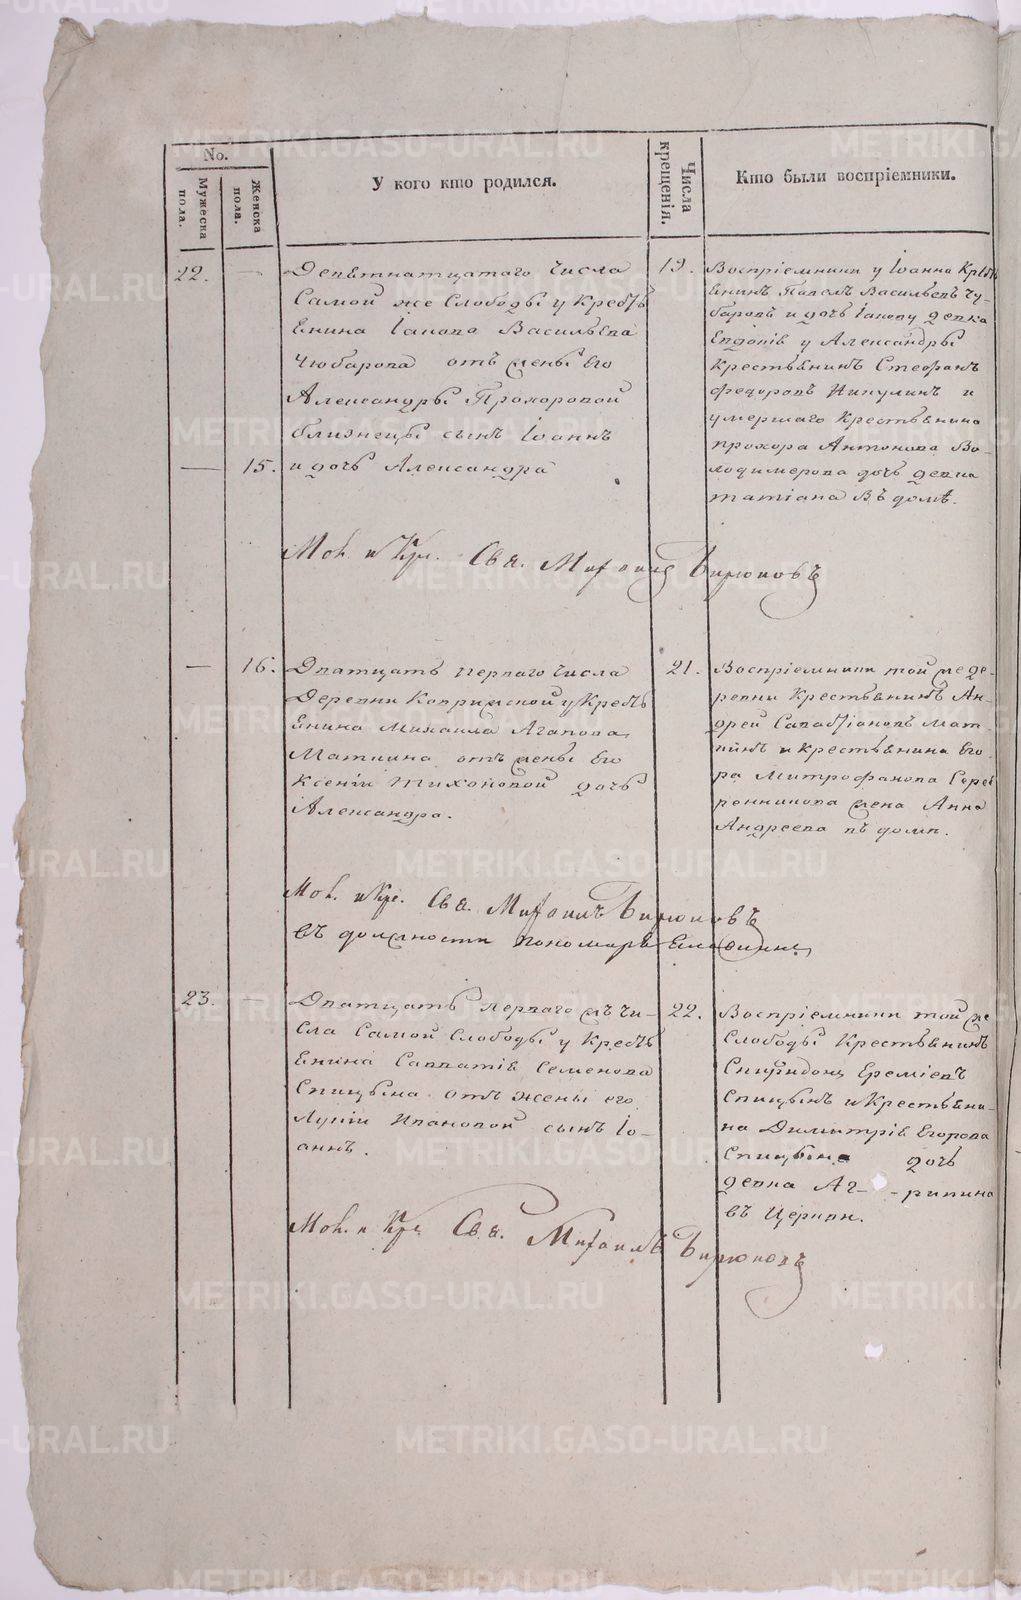 No.
Мужеска пола.
Женска пола.
У кого кто родился.
Числа крещенія.
Кто были воспріемники.
22. — Девѣтнатцатаго числа
Самой же Слободы у Кресть
ѣнина Іакова Васильева
Чюбарова отъ жены Его
Александры Прохоровой
близнецы сынъ Іоаннъ
— 15. и дочь Александра
19. Воспріемники у Іоанна Кресть
ѣнинъ Павелъ Васильевъ Чу-
баровъ и дочь Іакову девка
Евдокія у Александры
Крестьѣнинъ Стефанъ
Федоровъ Никулинъ и
умершаго Крестьѣнина
Прохора Антонова Во-
лодимерова дочь девка
татіана въ домѣ.
Мол. и Кре. Свя. Михаилъ Бирюковъ
— 16. Дватцать перваго числа
Деревни Ковримской у Кресть
ѣнина Михаила Агапова
Маткина отъ жены Его
Ксеніи Тихоновой дочь
Александра.
21. Воспріемники той же де-
ревни Крестьѣнинъ Ан-
дрей Савастіановъ Мат-
кинъ и крестьѣнина Его
ра Митрофанова Сереб
ренникова жена Анна
Андреева въ доме.
Мол. и Кре. Свя. Михаилъ Бирюковъ
въ должности пономаря
23. — Дватцать перваго жъ чи-
сла Самой Слободы у Кресть
ѣнина Савватія Семенова
Спицына отъ жены его
Лукіи Ивановой сынъ Іо-
аннъ.
22. Воспріемники той же
Слободы Крестьѣнинъ
Спиридонъ Ереміевъ
Спицынъ и Крестьѣни-
на Димитрія Егорова
Спицына дочь
девка Аг- -рипина
въ Церкви.
Мол. и Кре. Свя. Михаилъ Бирюковъ
METRIKI.GASO-URAL.RU